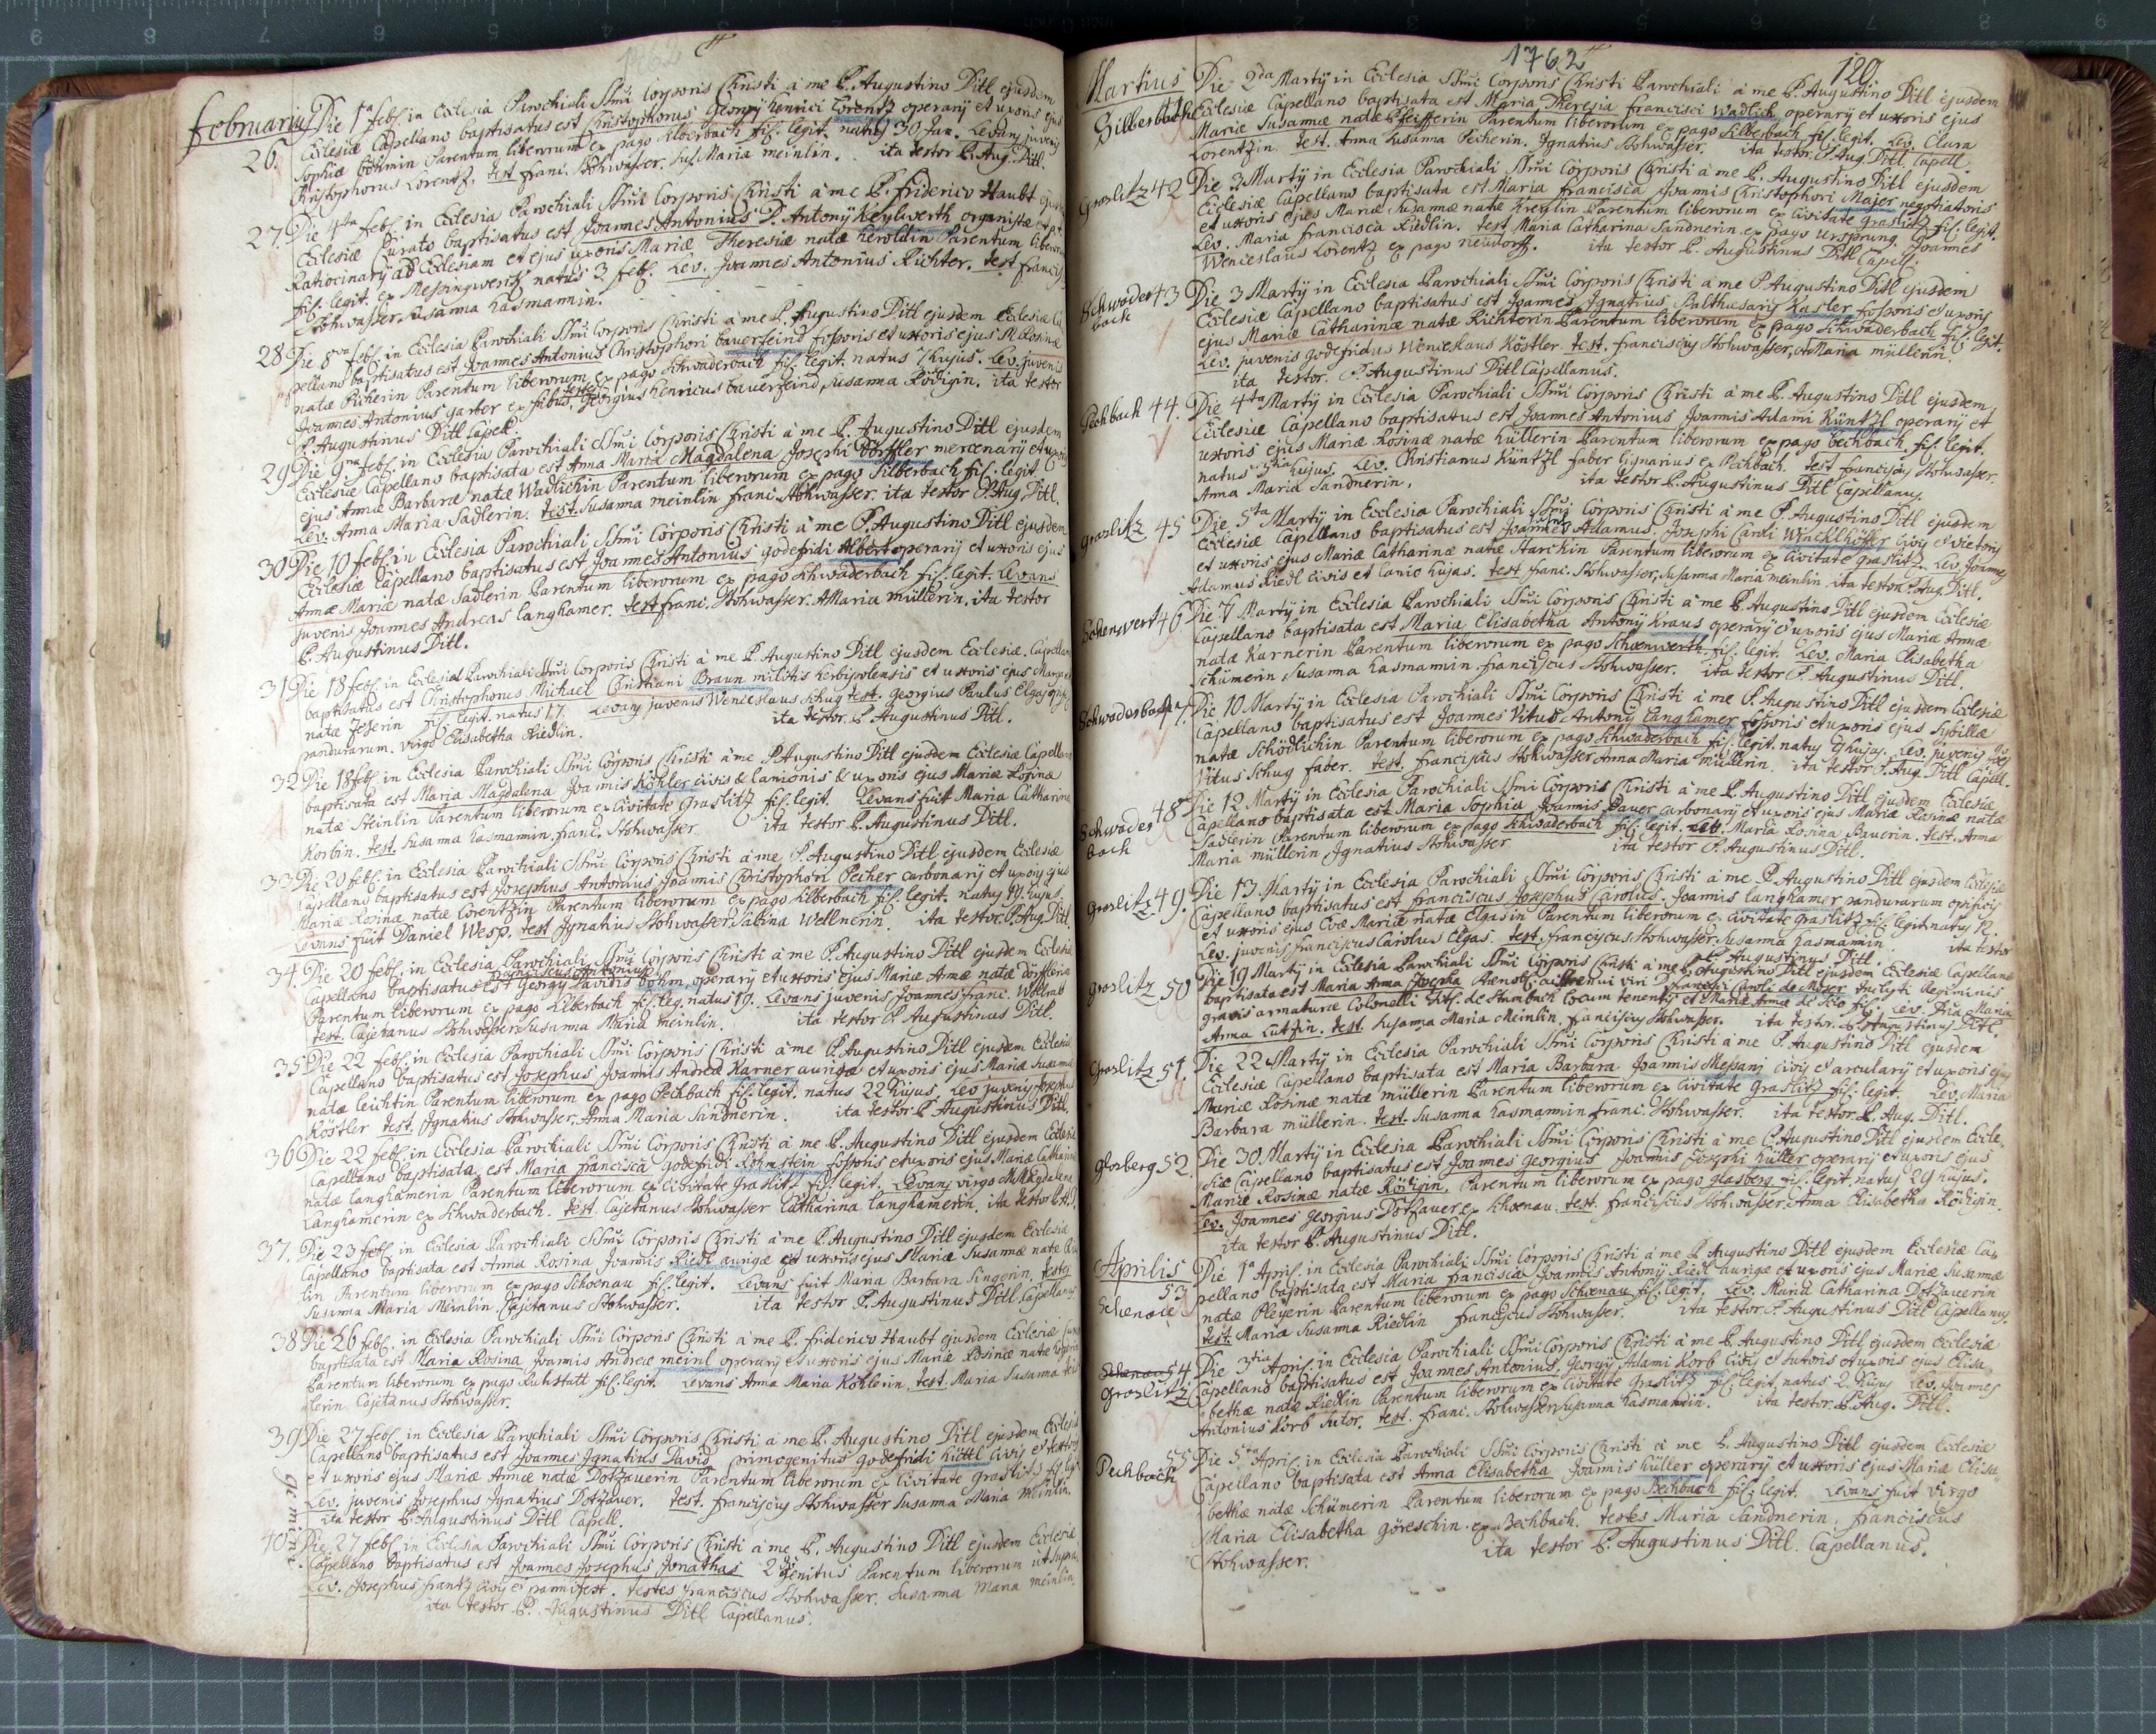 1762
Februarius
26.
Die 1ª feb: in Ecclesia Parochiali SSmi Corporis Christi à me P. Augustino Ditl ejusdem
Ecclesiæ Capellano baptisatus est Christophorus Georgÿ Henrici Lorentz operarÿ et uxoris ejus
Sophiæ böhmin Parentum liberorum ex pago Silberbach fil. legit. natus 30 Jan. Levans juvenis
Christophorus Lorentz. test Franc. Stohwasser. Sus. Maria meinlin. ita testor P. Aug. Ditl.
27. Die 4ta feb: in Ecclesia Parochiali SSmi Corporis Christi à me P. Friderico Haubt
Ecclesiæ Curato baptisatus est Joannes Antonius D. Antonÿ Keylwerth organistæ et
Ratiocinarÿ ad Ecclesiam et ejus uxoris Mariæ Theresiæ natæ Heroldin Parentum liberorum
fil. legit. ex Messingwerck natus 3 feb. Lev. Joannes Antonius Richter. test Francis
Stohwasser, Susanna Hasmannin.
28 Die 8va feb: in Ecclesia Parochiali SSmi Corporis Christi à me P. Augustino Ditl ejusdem Ecclesiæ Ca
pellano baptisatus est Joannes Antonius Christophori bauerfeind fossoris et uxoris ejus M. Rosinæ
natæ Picherin Parentum liberorum ex pago Schwaderbach fil. legit. natus 7 hujus. Lev. juvenis
Joannes Antonius garber testes Georgius Henricus bauerfeind, Susanna Rödigin. ita testor
P. Augustinus Ditl Capell.
29 Die 9na feb: in Ecclesia Parochiali SSmi Corporis Christi à me P. Augustino Ditl ejusdem
Ecclesiæ Capellano baptisata est Anna Maria Magdalena Josephi Dörffler mercenarÿ et uxoris
ejus Annæ Barbaræ natæ Wadlichin Parentum liberorum ex pago Silberbach fil. legit.
Lev. Anna Maria Sadlerin. test. Susanna meinlin Franc. Stohwasser. ita testor P. Aug. Ditl.
30 Die 10 feb: in Ecclesia Parochiali SSmi Corporis Christi à me P. Augustino Ditl ejusdem
Ecclesiæ Capellano baptisatus est Joannes Antonius godefridi Albert operarÿ et uxoris ejus
Annæ Mariæ natæ Sadlerin Parentum liberorum ex pago Schwaderbach fil. legit. Levans
juvenis Joannes Andreas langhamer. test Franc. Stohwasser. A Maria müllerin. ita testor
P. Augustinus Ditl.
31 Die 18 feb: in Ecclesia Parochiali SSmi Corporis Christi à me P. Augustino Ditl ejusdem Ecclesiæ Capellano
baptisatus est Christophorus Michael Christiani Braun militis Herbipolensis et uxoris ejus
natæ fil. legit. natus 17. Levans juvenis Wenceslaus Schug test. Georgius Paulus Elgas
pandurarum. virgo Elisabetha Riedlin. ita testor P. Augustinus Ditl.
32 Die 18 feb: in Ecclesia Parochiali SSmi Corporis Christi à me P. Augustino Ditl ejusdem Ecclesiæ Capellano
baptisata est Maria Magdalena Joannis Köhler civis & lanionis & uxoris ejus Mariæ Rosinæ
natæ Steinlin Parentum liberorum ex Civitate Graslitz fil. legit. Levans fuit Maria Catharina
Korbin. test. Susanna Hasmannin. Franc. Stohwasser ita testor P. Augustinus Ditl.
33 Die 20 feb: in Ecclesia Parochiali SSmi Corporis Christi à me P. Augustino Ditl ejusdem Ecclesiæ
Capellano baptisatus est Josephus Antonius Joannis Christophori Pecher carbonarÿ et uxoris ejus
Mariæ Rosinæ natæ Lorentzin Parentum liberorum ex pago Silberbach fil. legit. natus 19. hujus.
Levans fuit Daniel Wesp. test Ignatius Stohwasser. Sabina Wellnerin. ita testor P. Aug. Ditl.
34. Die 20 feb: in Ecclesia Parochiali SSmi Corporis Christi à me P. Augustino Ditl ejusdem Ecclesiæ
Franciscus Antonius
Capellano baptisatus est Georgÿ Davidis böhm operarÿ et uxoris ejus Mariæ Annæ natæ Dörfflerin
Parentum liberorum ex pago Silberbach fil. leg. natus 19. Levans juvenis Joannes Franc.
test. Cajetanus Stohwasser, Susanna Maria meinlin. ita testor P. Augustinus Ditl.
35 Die 22 feb: in Ecclesia Parochiali SSmi Corporis Christi à me P. Augustino Ditl ejusdem Ecclesiæ
Capellano baptisatus est Josephus Joannis Andreæ Karner aurigæ et uxoris ejus Mariæ Susannæ
natæ leichtin Parentum liberorum ex pago Pechbach fil. legit. natus 22 hujus. Lev juvenis Josephus
Köstler test. Ignatius Stohwasser, Anna Maria Sandnerin. ita testor P. Augustinus Ditl.
36 Die 22 feb: in Ecclesia Parochiali SSmi Corporis Christi à me P. Augustino Ditl ejusdem Ecclesiæ
Capellano baptisata est Maria Francisca godefridi fossoris et uxoris ejus Mariæ Catharinæ
natæ langhamerin Parentum liberorum ex Civitate Graslitz fil. legit. Levans virgo M. Magdalena
Langhamerin ex Schwaderbach. test. Cajetanus Stohwasser Catharina langhamerin. ita testor
37. Die 23 feb: in Ecclesia Parochiali SSmi Corporis Christi à me P. Augustino Ditl ejusdem Ecclesiæ
Capellano baptisata est Anna Rosina Joannis Riedl aurigæ et uxoris ejus Mariæ Susannæ natæ
lin Parentum liberorum ex pago Schoenau fil. legit. Levans fuit Maria Barbara Singerin. testes
Susanna Maria Meinlin. Cajetanus Stohwasser. ita testor P. Augustinus Ditl. Capellanus
38 Die 26 feb: in Ecclesia Parochiali SSmi Corporis Christi à me P. Friderico Haubt ejusdem Ecclesiæ
baptisata est Maria Rosina Joannis Andreæ meinl operarÿ et uxoris ejus Mariæ Rosinæ natæ
Parentum liberorum ex pago Ruhstatt fil. legit. Levans Anna Maria Köhlerin. test. Maria Susanna
lerin Cajetanus Stohwasser.
39 Die 27 feb: in Ecclesia Parochiali SSmi Corporis Christi à me P. Augustino Ditl ejusdem Ecclesiæ
Capellano baptisatus est Joannes Ignatius David primogenitus godefridi civis et
et uxoris ejus Mariæ Annæ natæ Dotzauerin Parentum liberorum ex Civitate Graslitz fil. legit.
Lev. juvenis Josephus Ignatius Dotzauer. test. Franciscus Stohwasser Susanna Maria Meinlin.
ita testor P. Augustinus Ditl Capell.
gemini
40 Die 27 feb: in Ecclesia Parochiali SSmi Corporis Christi à me P. Augustino Ditl ejusdem Ecclesiæ
Capellano baptisatus est Joannes Josephus Jonathas 2do genitus Parentum liberorum ut supra.
Lev. Josephus Frantz civis et pannifex. testes Franciscus Stohwasser. Susanna Maria meinlin
ita testor P. Augustinus Ditl Capellanus.
1762
120.
Martius
Silberbach
Die 2da Martÿ in Ecclesia SSmi Corporis Christi Parochiali à me P. Augustino Ditl ejusdem
Ecclesiæ Capellano baptisata est Maria Theresia Francisci Wadlich operarÿ et uxoris ejus
Mariæ Susannæ natæ Pleifferin Parentum liberorum ex pago Silberbach fil. legit. Lev. Clara
Lorentzin. test. Anna Susanna Pecherin. Ignatius Stohwasser. ita testor P. Aug. Ditl. Capell.
Graslitz 42 Die 3 Martÿ in Ecclesia Parochiali SSmi Corporis Christi à me P. Augustino Ditl ejusdem
Ecclesiæ Capellano baptisata est Maria Francisca Joannis Christophori Majer negotiatoris
et uxoris ejus Mariæ Susannæ natæ Parentum liberorum ex Civitate Graslitz fil. legit.
Lev. Maria Francisca Riedlin. test Maria Catharina Sandnerin ex pago Ursprung. Joannes
Wenceslaus Lorentz ex pago neudorff. ita testor P. Augustinus Ditl Capell.
Schwader
bach
43 Die 3 Martÿ in Ecclesia Parochiali SSmi Corporis Christi à me P. Augustino Ditl ejusdem
Ecclesiæ Capellano baptisatus est Joannes Ignatius Balthasaris Kasler fossoris et uxoris
ejus Mariæ Catharinæ natæ Richterin Parentum liberorum ex pago Schwaderbach fil. legit.
Lev. juvenis godefridus Wenceslaus Köstler. test. Franciscus Stohwasser, A Maria müllerin.
ita testor. P. Augustinus Ditl Capellanus.
Pechbach 44. Die 4ta Martÿ in Ecclesia Parochiali SSmi Corporis Christi à me P. Augustino Ditl ejusdem
Ecclesiæ Capellano baptisatus est Joannes Antonius Joannis Adami Küntzl operarÿ et
uxoris ejus Mariæ Rosinæ natæ hüllerin Parentum liberorum ex pago bechbach fil. legit.
natus hujus. Lev. Christianus Küntzl faber lignarius ex Pechbach. test Franciscus Stohwasser.
Anna Maria Sandnerin. ita testor P. Augustinus Ditl Capellanus.
Graslitz 45 Die 5ta Martÿ in Ecclesia Parochiali SSmi Corporis Christi à me P. Augustino Ditl ejusdem
Ecclesiæ Capellano baptisatus est Joannes Adamus, Josephi Caroli Wincklhöfer civis et vietoris
et uxoris ejus Mariæ Catharinæ natæ Starckin Parentum liberorum ex Civitate Graslitz. Lev. Joannes
Adamus Riedl civis et lanio hujas. test Franc. Stohwasser, Susanna Maria meinlin ita testor P. Aug. Ditl.
Schenwert 46 Die 7 Martÿ in Ecclesia Parochiali SSmi Corporis Christi à me P. Augustino Ditl ejusdem Ecclesiæ
Capellano baptisata est Maria Elisabetha Antonÿ Kraus operarÿ et uxoris ejus Mariæ Annæ
natæ Karnerin Parentum liberorum ex pago Schoenwerth fil. legit. Lev. Maria Elisabetha
Schümerin Susanna Hasmannin. Franciscus Stohwasser. ita testor P. Augustinus Ditl.
Schwaderbach 47. Die 10 Martÿ in Ecclesia Parochiali SSmi Corporis Christi à me P. Augustino Ditl ejusdem Ecclesiæ
Capellano baptisatus est Joannes Vitus Antonÿ Langhamer fossoris et uxoris ejus Sybillæ
natæ Schödlichin Parentum liberorum ex pago Schwaderbach fil. legit. natus 9 hujus. Lev. juvenis Jos.
Vitus Schug faber. test. Franciscus Stohwasser Anna Maria müllerin. ita testor P. Aug. Ditl Capell.
Schwader
bach
48 Die 12 Martÿ in Ecclesia Parochiali SSmi Corporis Christi à me P. Augustino Ditl ejusdem Ecclesiæ
Capellano baptisata est Maria Sophia Joannis Bauer carbonarÿ et uxoris ejus Mariæ Rosinæ natæ
Sadlerin Parentum liberorum ex pago Schwaderbach fil. legit. Lev. Maria Rosina Bauerin. test. Anna
Maria müllerin Ignatius Stohwasser ita testor P. Augustinus Ditl.
Graslitz 49. Die 13. Martÿ in Ecclesia Parochiali SSmi Corporis Christi à me P. Augustino Ditl ejusdem Ecclesiæ
Capellano baptisatus est Franciscus Josephus Carolus. Joannis Langhamer pandurarum opificis
et uxoris ejus Evæ Mariæ natæ Elgasin Parentum liberorum ex Civitate Graslitz fil. legit. natus 12.
Lev. juvenis Franciscus Carolus Elgas. test. Franciscus Stohwasser. Susanna Hasmannin. ita testor
P. Augustinus Ditl.
Graslitz 50 Die 19 Martÿ in Ecclesia Parochiali SSmi Corporis Christi à me P. Augustino Ditl ejusdem Ecclesiæ Capellano
baptisata est Maria Anna Josepha Prænob. ac strenui viri D. Francisci Caroli de Moser inclyti Regiminis
gravis armaturæ Colonelli Tit. de Stambach locum tenentis et Mariæ Annæ fil. Lev. Dna Maria
Anna Lutzin. test. Susanna Maria Meinlin, Franciscus Stohwasser. ita testor. P. Augustinus Ditl.
Graslitz 51. Die 22 Martÿ in Ecclesia Parochiali SSmi Corporis Christi à me P. Augustino Ditl ejusdem
Ecclesiæ Capellano baptisata est Maria Barbara Joannis Messani civis et arcularÿ et uxoris ejus
Mariæ Rosinæ natæ müllerin Parentum liberorum ex Civitate Graslitz fil. legit. Lev. Maria
Barbara müllerin. test. Susanna Hasmannin Franc. Stohwasser. ita testor P. Aug. Ditl.
Glasberg 52. Die 30 Martÿ in Ecclesia Parochiali SSmi Corporis Christi à me P. Augustino Ditl ejusdem Eccle
siæ Capellano baptisatus est Joannes Georgius Joannis Josephi hüller operarÿ et uxoris ejus
Mariæ Rosinæ natæ Rödigin, Parentum liberorum ex pago glasberg fil. legit. natus 29 hujus.
Lev. Joannes Georgius Dotzauer ex Schoenau. test. Franciscus Stohwasser. Anna Elisabetha Rödigin.
ita testor P. Augustinus Ditl.
Aprilis
53
Schenau
Die 1ª April. in Ecclesia Parochiali SSmi Corporis Christi à me P. Augustino Ditl ejusdem Ecclesiæ Ca
pellano baptisata est Maria Francisca Joannis Antonÿ Riedl aurigæ et uxoris ejus Mariæ Susannæ
natæ Pleyerin Parentum liberorum ex pago Schoenau fil. legit. Lev. Maria Catharina Dotzauerin
test. Maria Susanna Riedlin Franciscus Stohwasser. ita testor P. Augustinus Ditl Capellanus.
Schenau 54.
Graslitz
Die 3tia April. in Ecclesia Parochiali SSmi Corporis Christi à me P. Augustino Ditl ejusdem Ecclesiæ
Capellano baptisatus est Joannes Antonius, Georgÿ Adami Korb civis et sutoris et uxoris ejus Elisa
bethæ natæ Riedlin Parentum liberorum ex Civitate Graslitz fil. legit. natus 2. hujus Lev. Joannes
Antonius Korb sutor. test. Franc. Stohwasser, Susanna Hasmannin. ita testor. P. Aug. Ditl.
Pechbach
55 Die 5ta April. in Ecclesia Parochiali SSmi Corporis Christi à me P. Augustino Ditl ejusdem Ecclesiæ
Capellano baptisata est Anna Elisabetha Joannis hüller operarÿ et uxoris ejus Mariæ Elisa
bethæ natæ Schümerin Parentum liberorum ex pago Pechbach fil. legit. Levans fuit virgo
Maria Elisabetha göreschin ex Bechbach. testes Maria Sandnerin. Franciscus
Stohwasser. ita testor P. Augustinus Ditl. Capellanus.